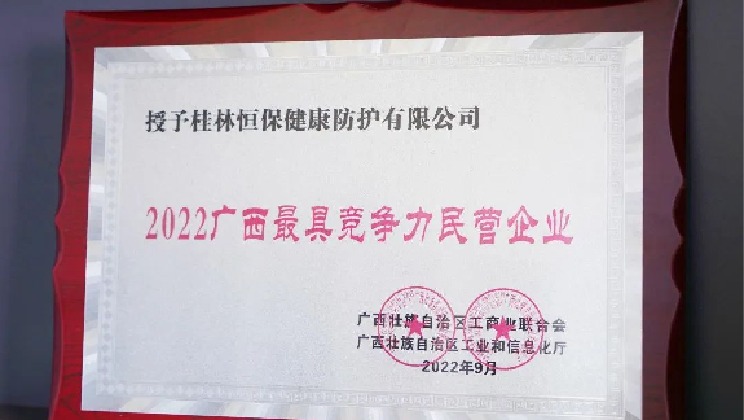 授予桂林恒保健康防护有限公司
2022广西最具竞争力民营企业
广西壮族自治区工商业联合会
广西壮族自治区工业和信息化厅
2022年9月